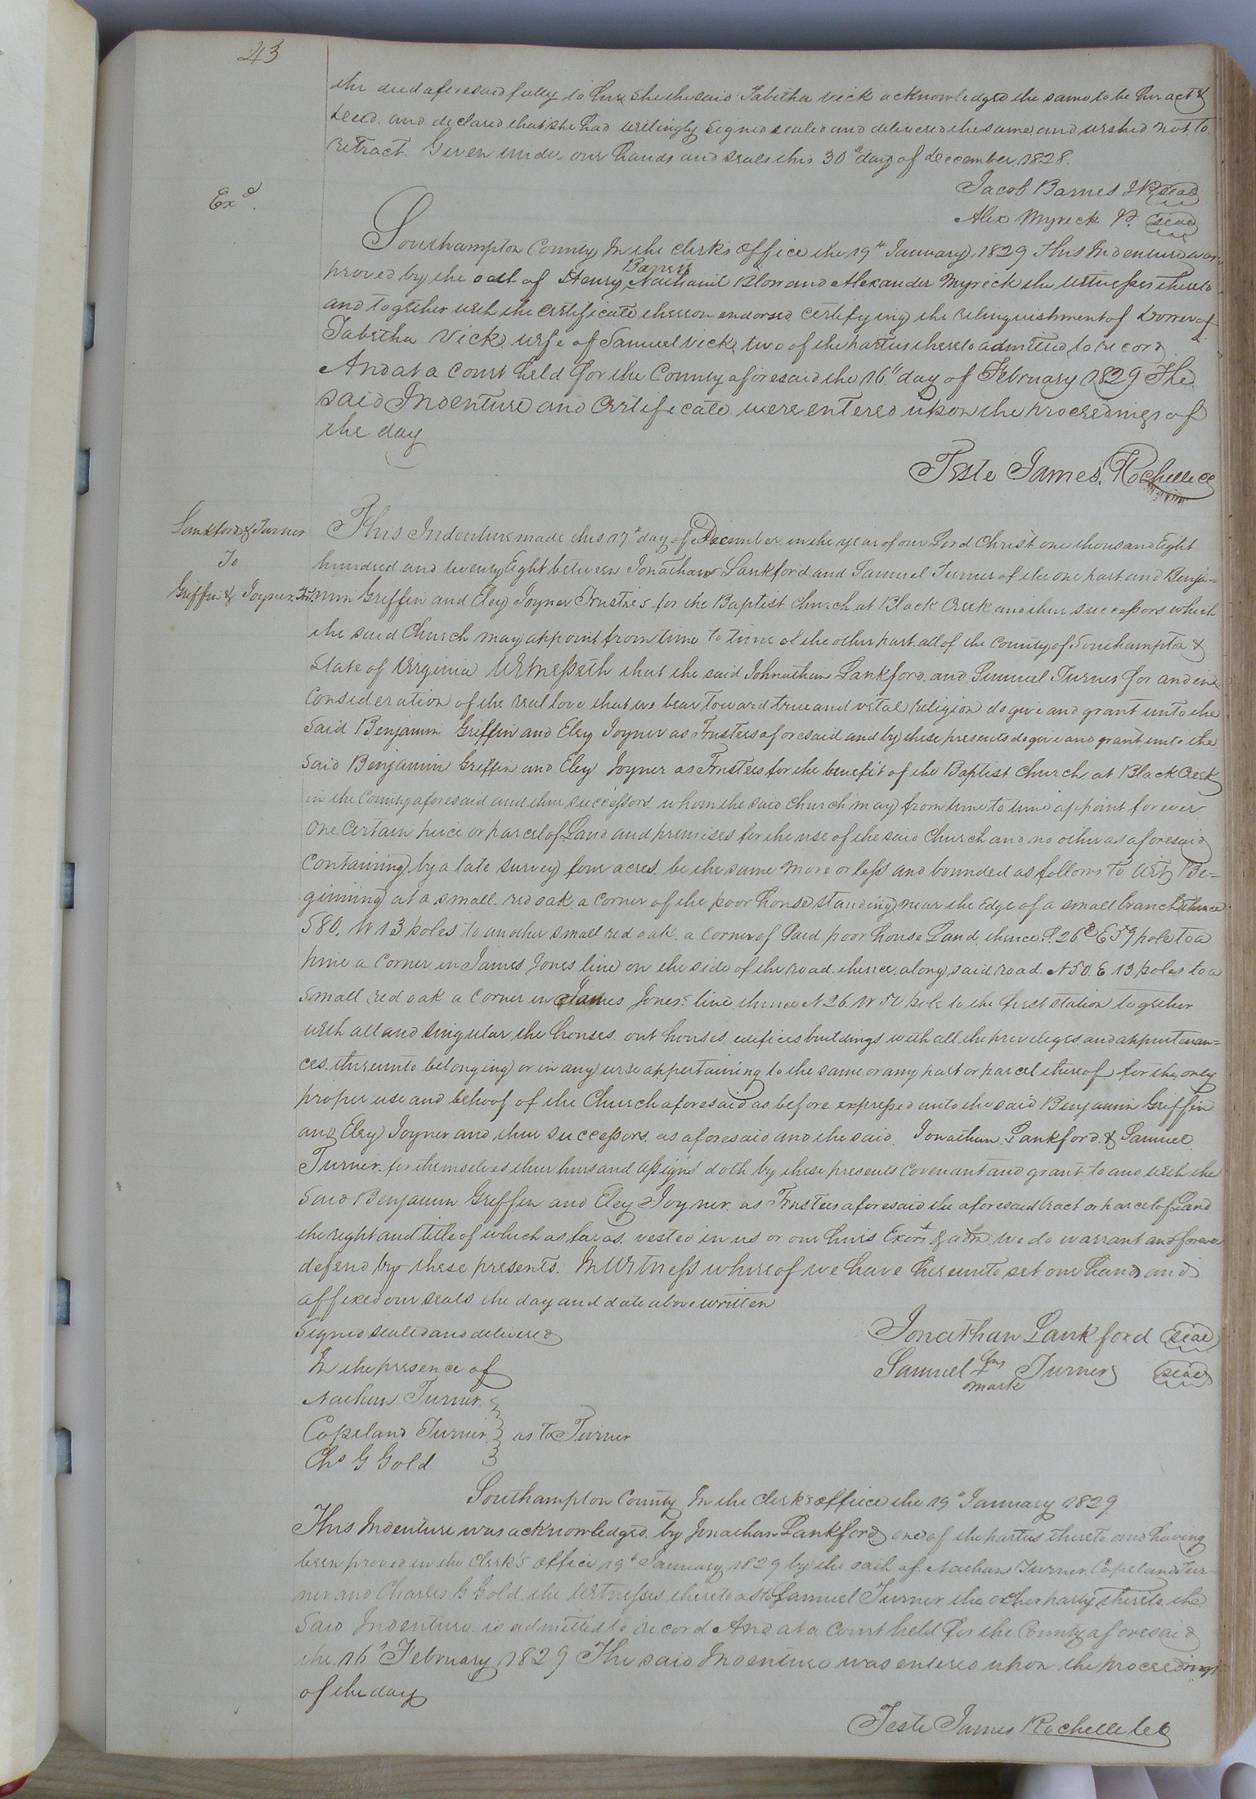 43
the deed aforesaid fully to her she the said Tabitha Vick acknowledged the same to be her act &
deed. and declared that she had willingly signed sealed and delivered the same and wished not to
retract. Given under our hands and seals this 30th day of December 1828.
Jacob Barnes JP seal
Exd.
Alex Myrick P. seal
Southampton County In the clerks office the 19th January 1829 This Indenture was
proved by the oath of Henry Barnes Nathaniel Blow and Alexander Myrick the witnesses thereto
and together with the certificate thereon endorsed certifying the relinquishment of Dower of
Tabitha Vick wife of Samuel Vick two of the parties thereto admitted to record
And at a court held for the County aforesaid the 16th day of February 1829 The
said Indenture and Certificate were entered upon the proceedings of
the day
Teste James Rochelle cc
Lankford & Turner
To
Griffin & Joyner Trs.
This Indenture made this 17th day of December in the year of our Lord Christ one thousand Eight
hundred and twenty Eight between Jonathan Lankford and Samuel Turner of the one part and Benja=
min Griffin and Eley Joyner Trustees for the Baptist church at Black Creek and their successors which
the said Church may appoint from time to time of the other part. all of the County of Southampton &
State of Virginia Witnesseth that the said Johnathan Lankford. and Samuel Turner for and in
Consideration of the real love that we bear toward true and vital religion do give and grant unto the
Said Benjamin Griffin and Eley Joyner as Trustees aforesaid and by these presents do give and grant unto the
Said Benjamin Griffin and Eley Joyner as Trustees for the benefit of the Baptist church at Black Creek
in the County aforesaid and their successors whom the said church may from time to time appoint for ever
One certain piece or parcel of Land and premises for the use of the said Church and no other as aforesaid
Containing by a late survey four acres. be the same more or less and bounded as follows to wit, Be=
ginning at a small red oak a corner of the poor house standing near the Edge of a small branch thence
S80. W 13 poles to another small red oak. a corner of said poor house Land, thence S. 26 E 59 pole to a
pine a corner in James Jones line on the side of the road. thence along said road N50. E 13 poles to a
small red oak a corner in James Jones's line thence N 26 W 50 pole to the first station together
with all and singular the houses. out houses. edifices buildings with all the priveleges and appurtenan=
ces. thereunto belonging or in any wise appertaining to the same or any part or parcel thereof for the only
proper use and behoof of the Church aforesaid as before expressed unto the said Benjamin Griffin
and Eley Joyner and their successors as aforesaid and the said. Jonathan Lankford & Samuel
Turner for themselves their heirs and assigns doth by these presents covenant and grant to and with the
Said Benjamin Griffin and Eley Joyner as Trustees aforesaid the aforesaid tract or parcel of Land
the right and title of which as far as. vested in us or our heirs Exors & adm. we do warrant and forever
defend by these presents. In Witness whereof we have hereunto set our hand and
affixed our seals the day and date above written
Signed sealed and delivered
Jonathan Lankford seal
In the presence of
Samuel his Turner seal
mark
Nathan Turner
Copeland Turner as to Turner
Chs G Gold
Southampton County In the Clerks office the 19th January 1829
This Indenture was acknowledged by Jonathan Lankford one of the parties thereto and having
been proved in the Clerk's office 19th January 1829 by the oath of Nathan Turner Copeland Tur=
ner and Charles G Gold the Witnesses thereto as to Samuel Turner the other party thereto the
Said Indenture is admitted to record And at a Court held for the County aforesaid
the 16th February 1829 The said Indenture was entered upon the proceedings
of the day
Teste James Rochelle cc